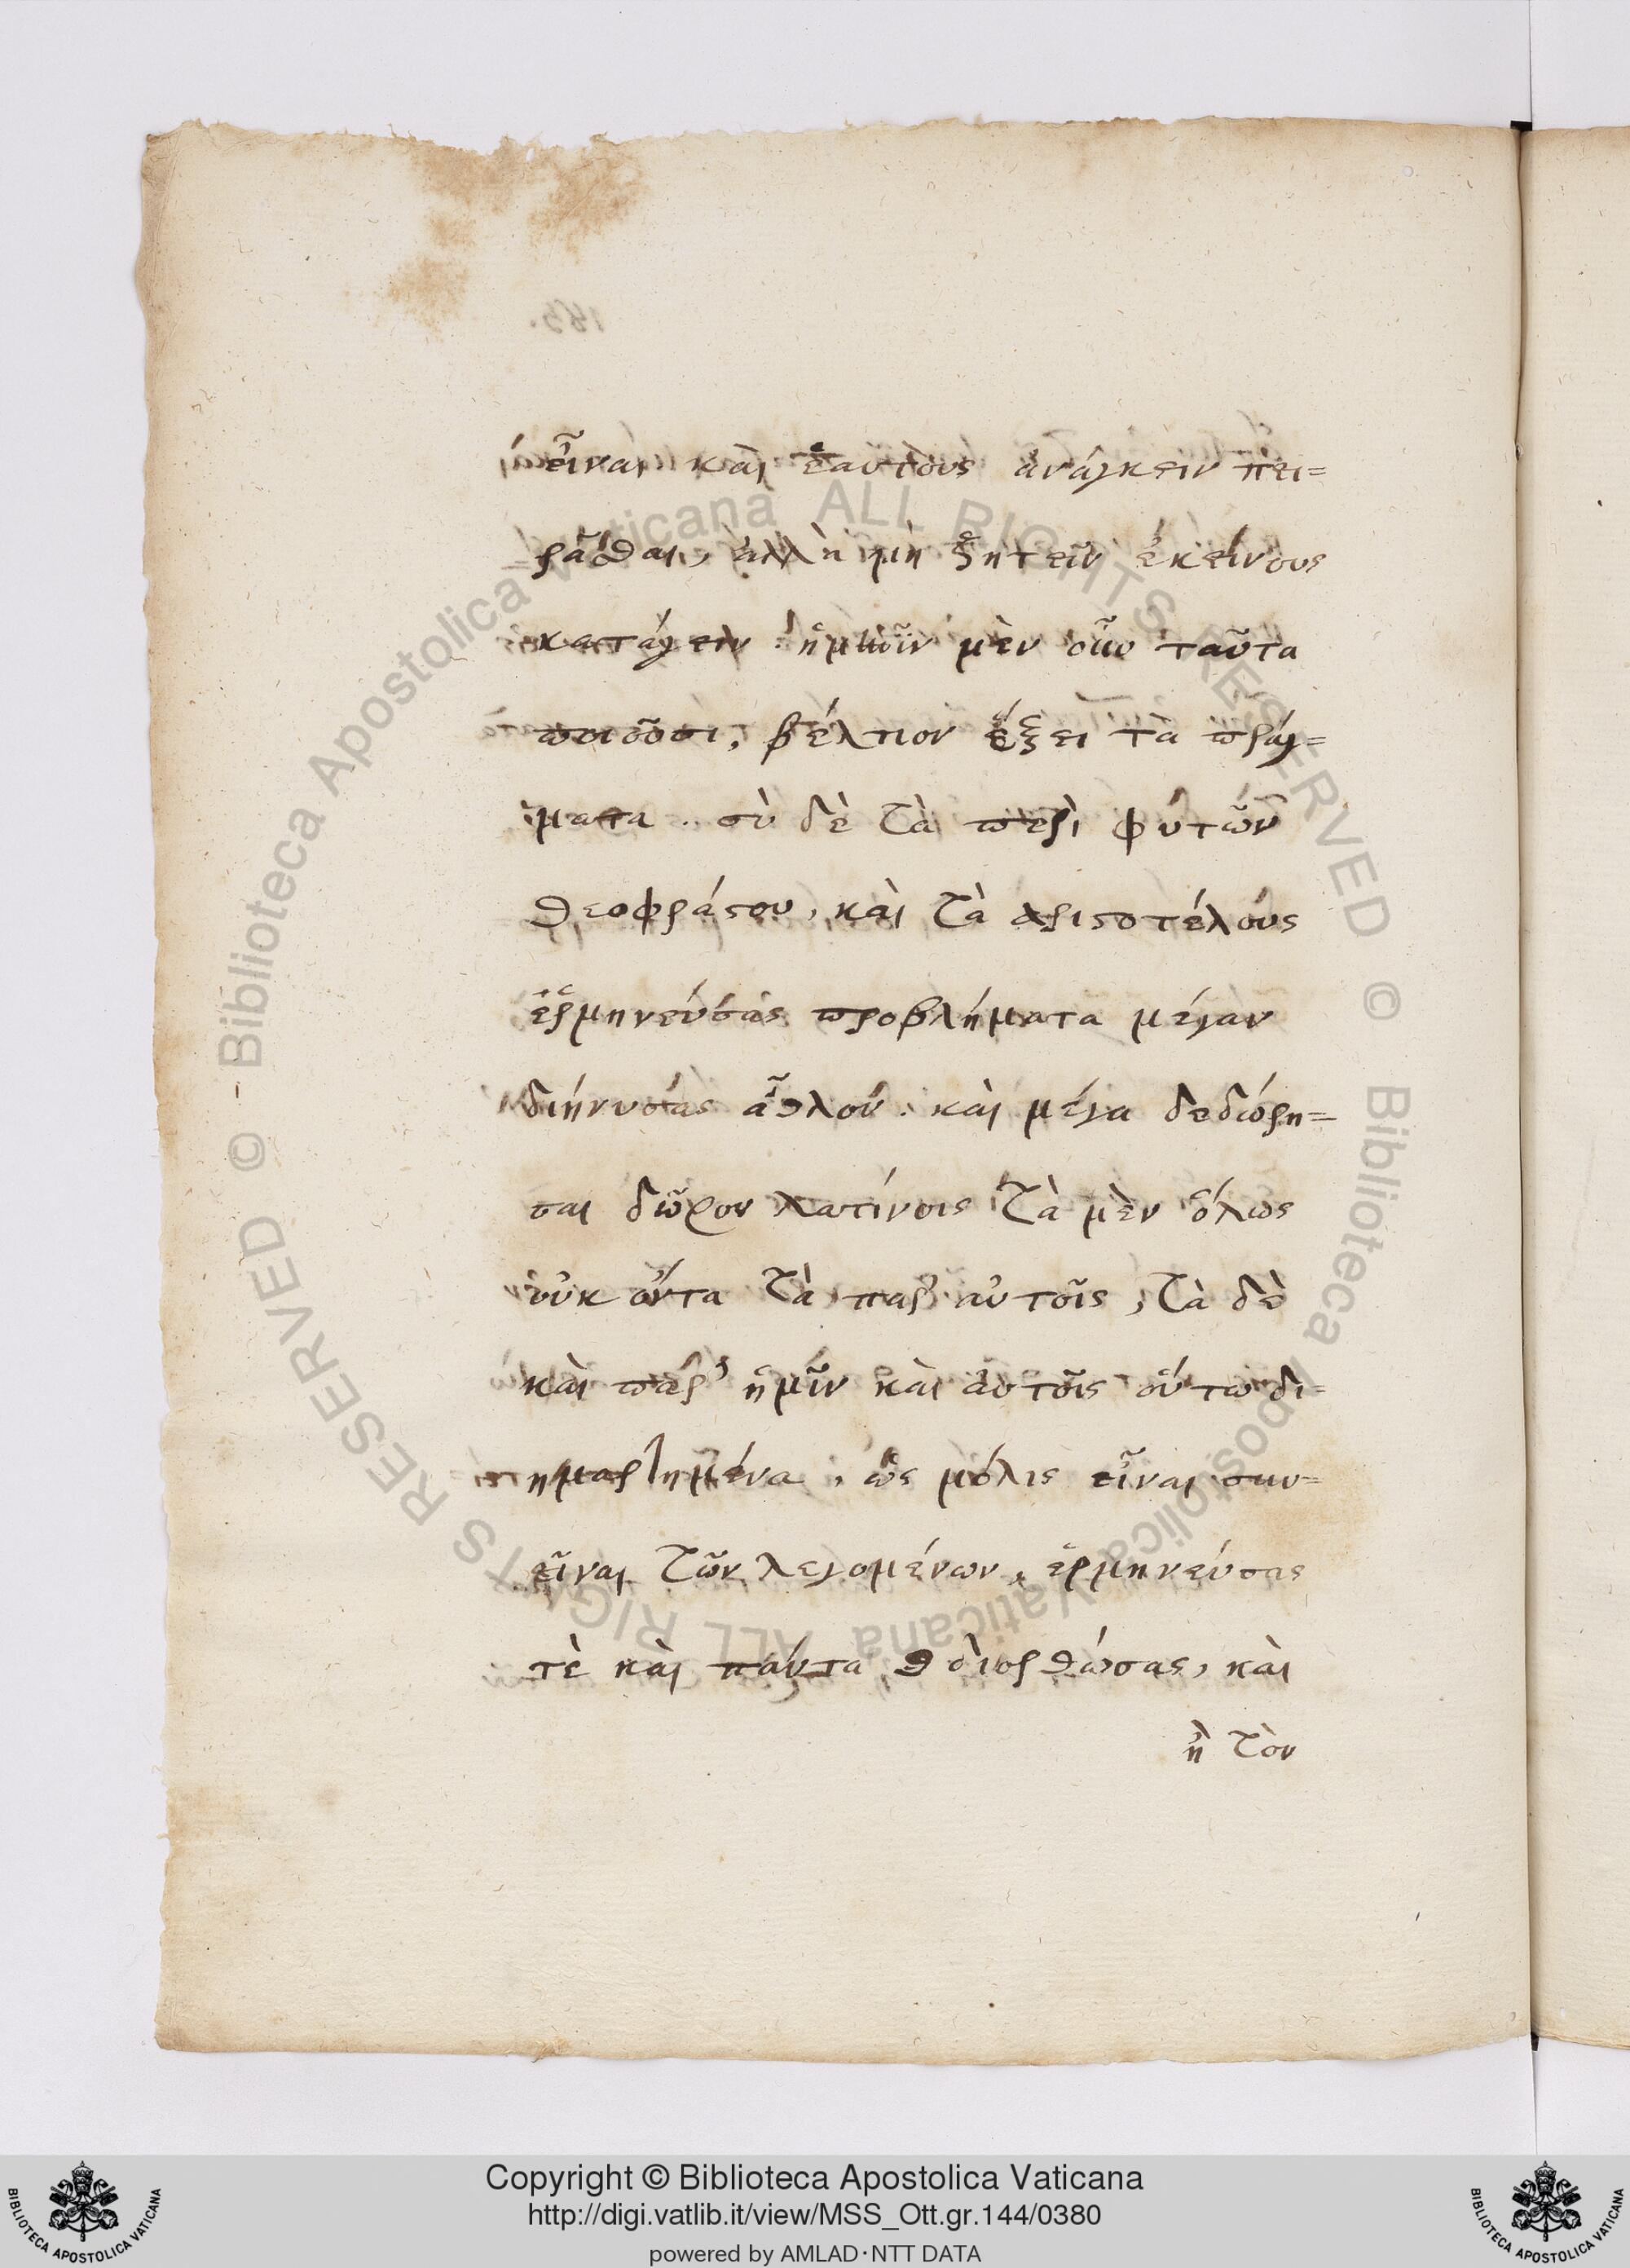 εἶναι καὶ ἑαυτοὺς ἀνάγκειν πει=
ρᾶσθαι, ἀλλὰ μὴ ζητεῖν ἐκείνους
κατάγειν. ἡμῖν μὲν οὖν ταῦτα
ποιοῦσι, βέλτιον ἕξει τὰ πράγ=
ματα. σὺ δὲ τὰ περὶ φυτῶν
θεοφράστου, καὶ τὰ ἀριστοτέλους
ἑρμηνεύσας προβλήματα μέγαν
διήνυσας ἆθλον. καὶ μέγα δεδώρη=
σαι δῶρον λατίνοις τὰ μὲν ὅλως
οὐκ ὄντα τὰ παρ' αὐτοῖς, τὰ δὲ
καὶ παρ' ἡμῖν καὶ αὐτοῖς οὕτω δι=
ημαρτημένα, ὡς μόλις εἶναι συν=
εῖναι τῶν λεγομένων, ἑρμηνεύσας
τὲ καὶ πάντα διορθώσας, καὶ
ἢ τὸν
Copyright © Biblioteca Apostolica Vaticana
http://digi.vatlib.it/view/MSS_Ott.gr.144/0380
powered by AMLAD·NTT DATA